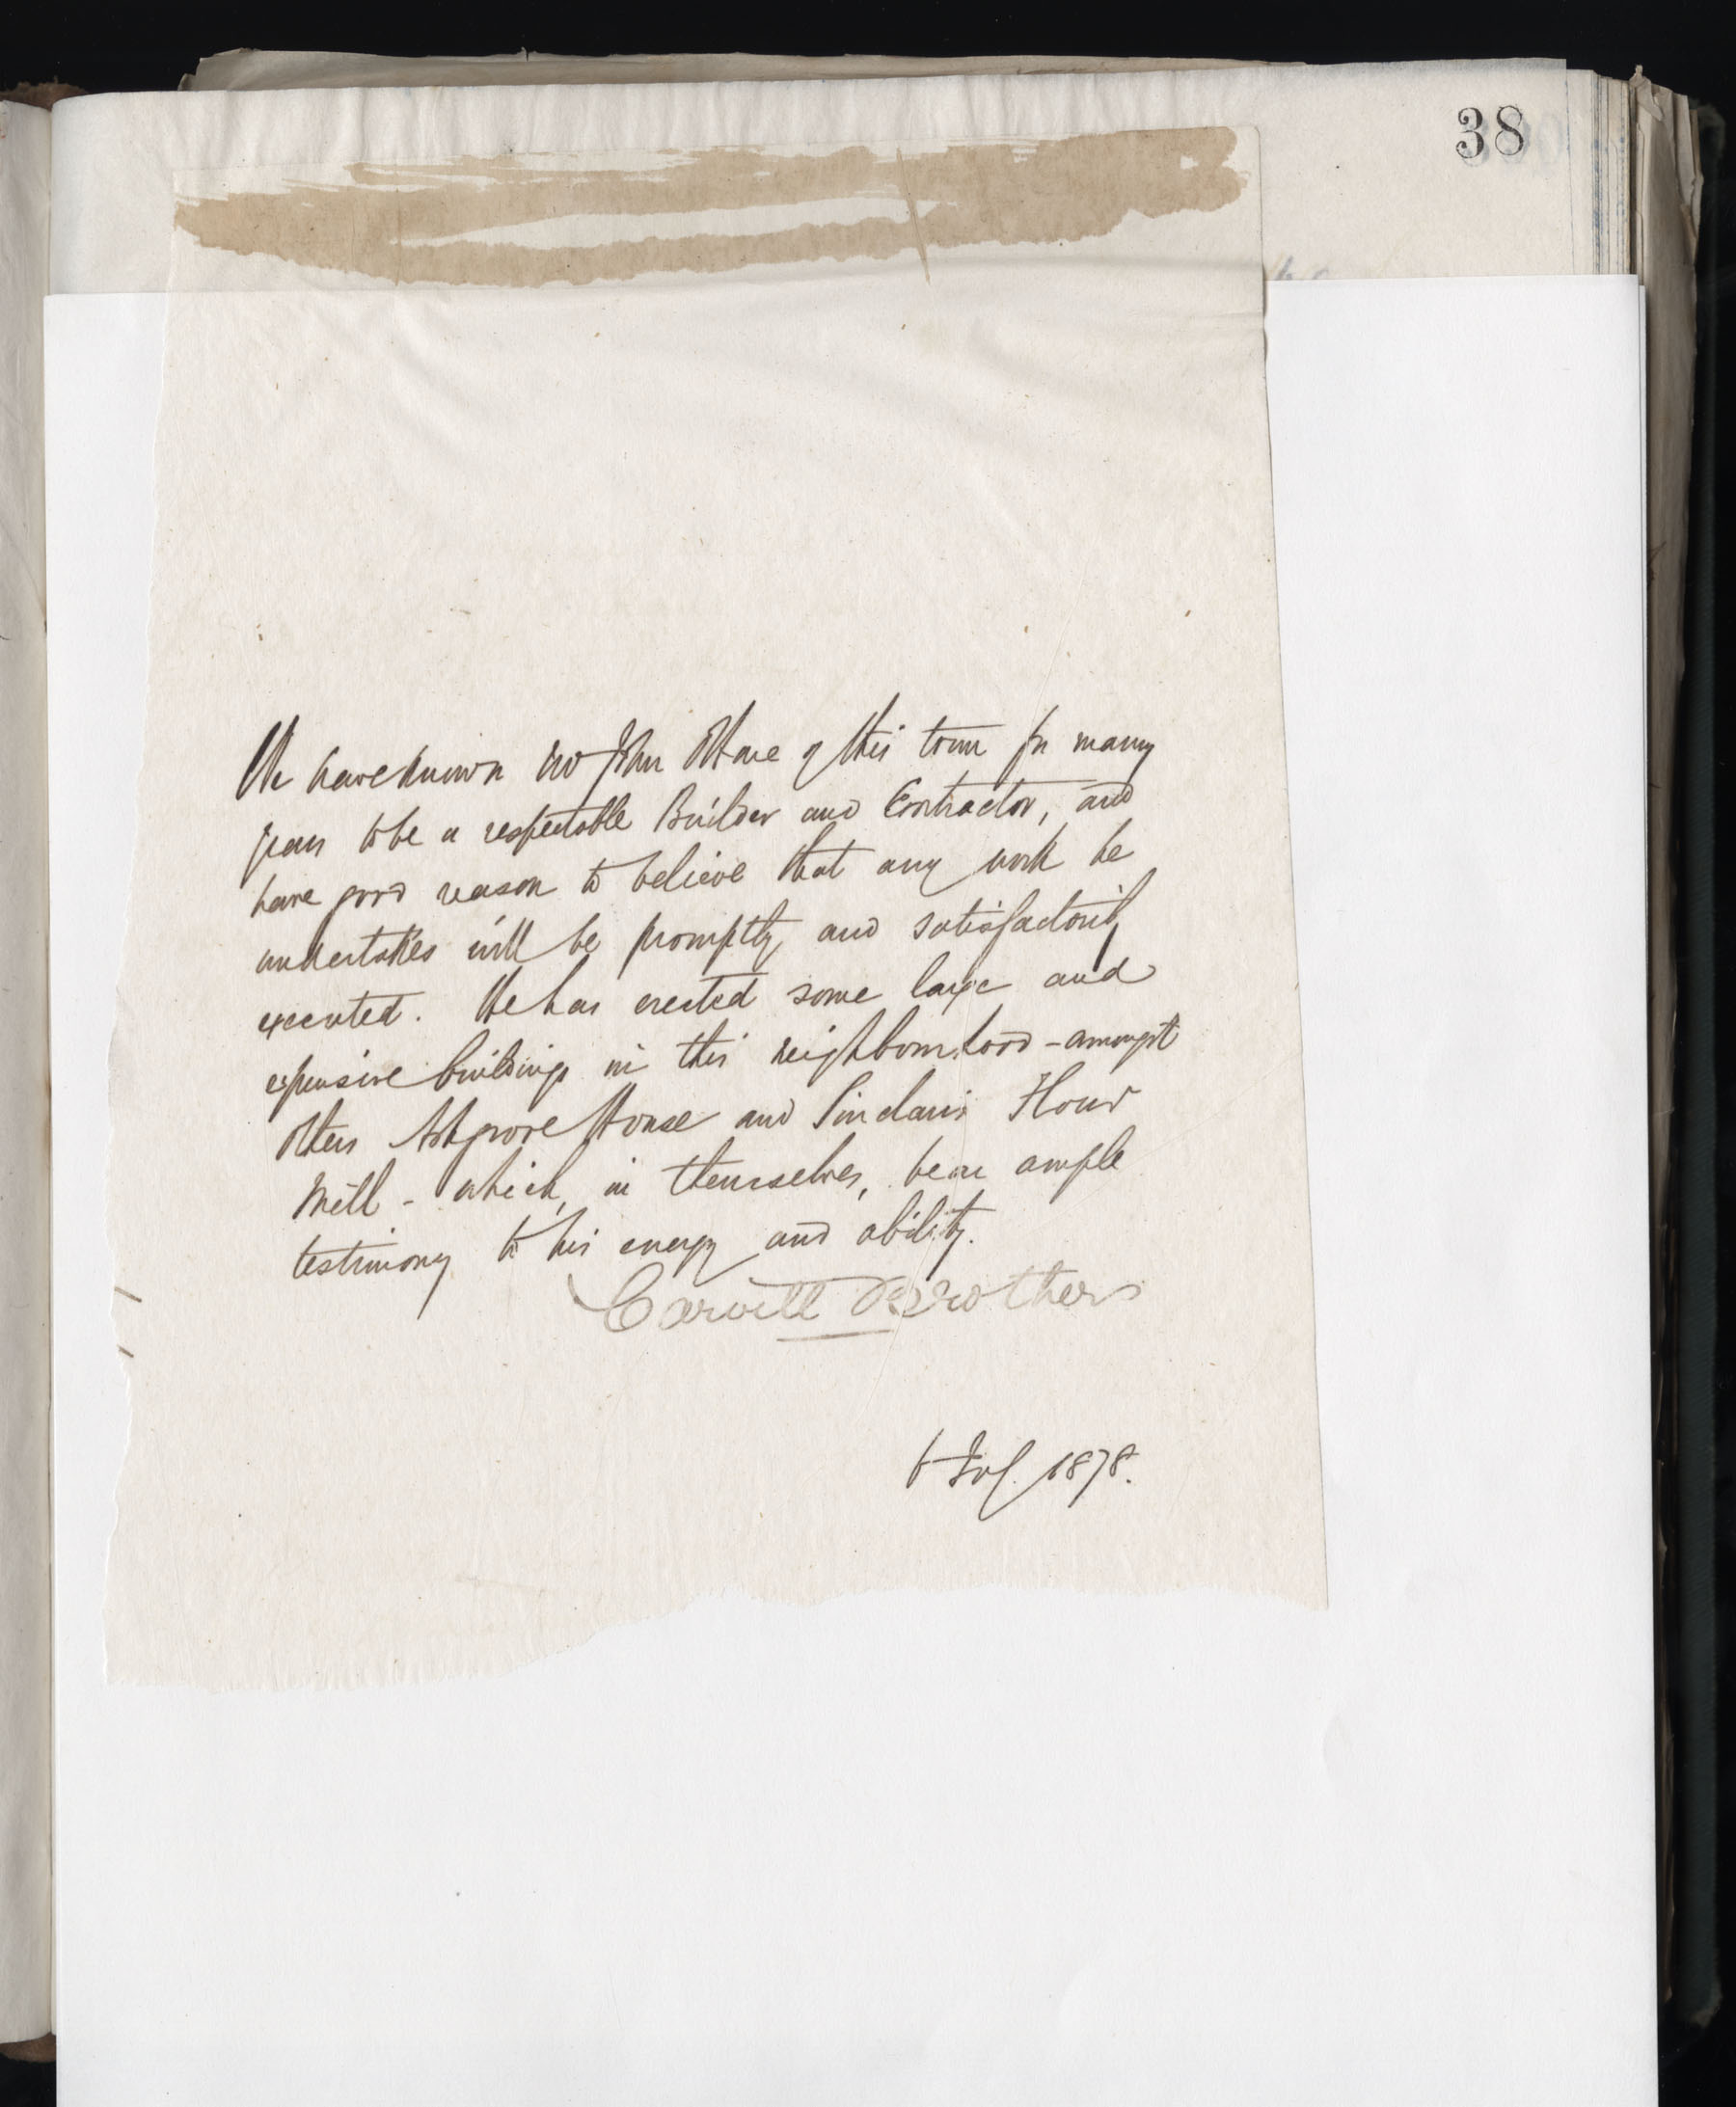 38
We have known Mr John O'Hare of this town for many
years to be a respectable Builder and Contractor, and
have good reason to believe that any work he
undertakes will be promptly and satisfactorily
executed. He has erected some large and
expensive buildings in this neighbourhood - amongst
others Ashgrove House and Sinclair's Flour
Mill - which, in themselves, bear ample
testimony to his energy and ability.
Carvill Brothers
6 July. 1878.